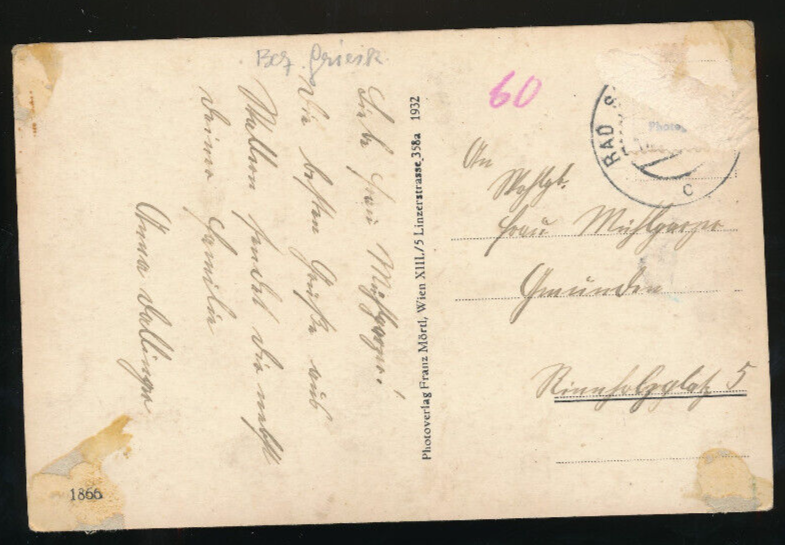 Bez. Griesk.
Liebe Frau Mühlgasser!
Die besten Grüße aus
Wallern sendet Die nebst
Deiner Familie
Anna Dallinger
Photoverlag Franz Mörtl, Wien XIII./5 Linzerstrasse 358a 1932
60
BAD S
Photo
c
An
Wohlgb.
Frau Mühlgasser
Gmunden
Rinnholzplatz 5
1866